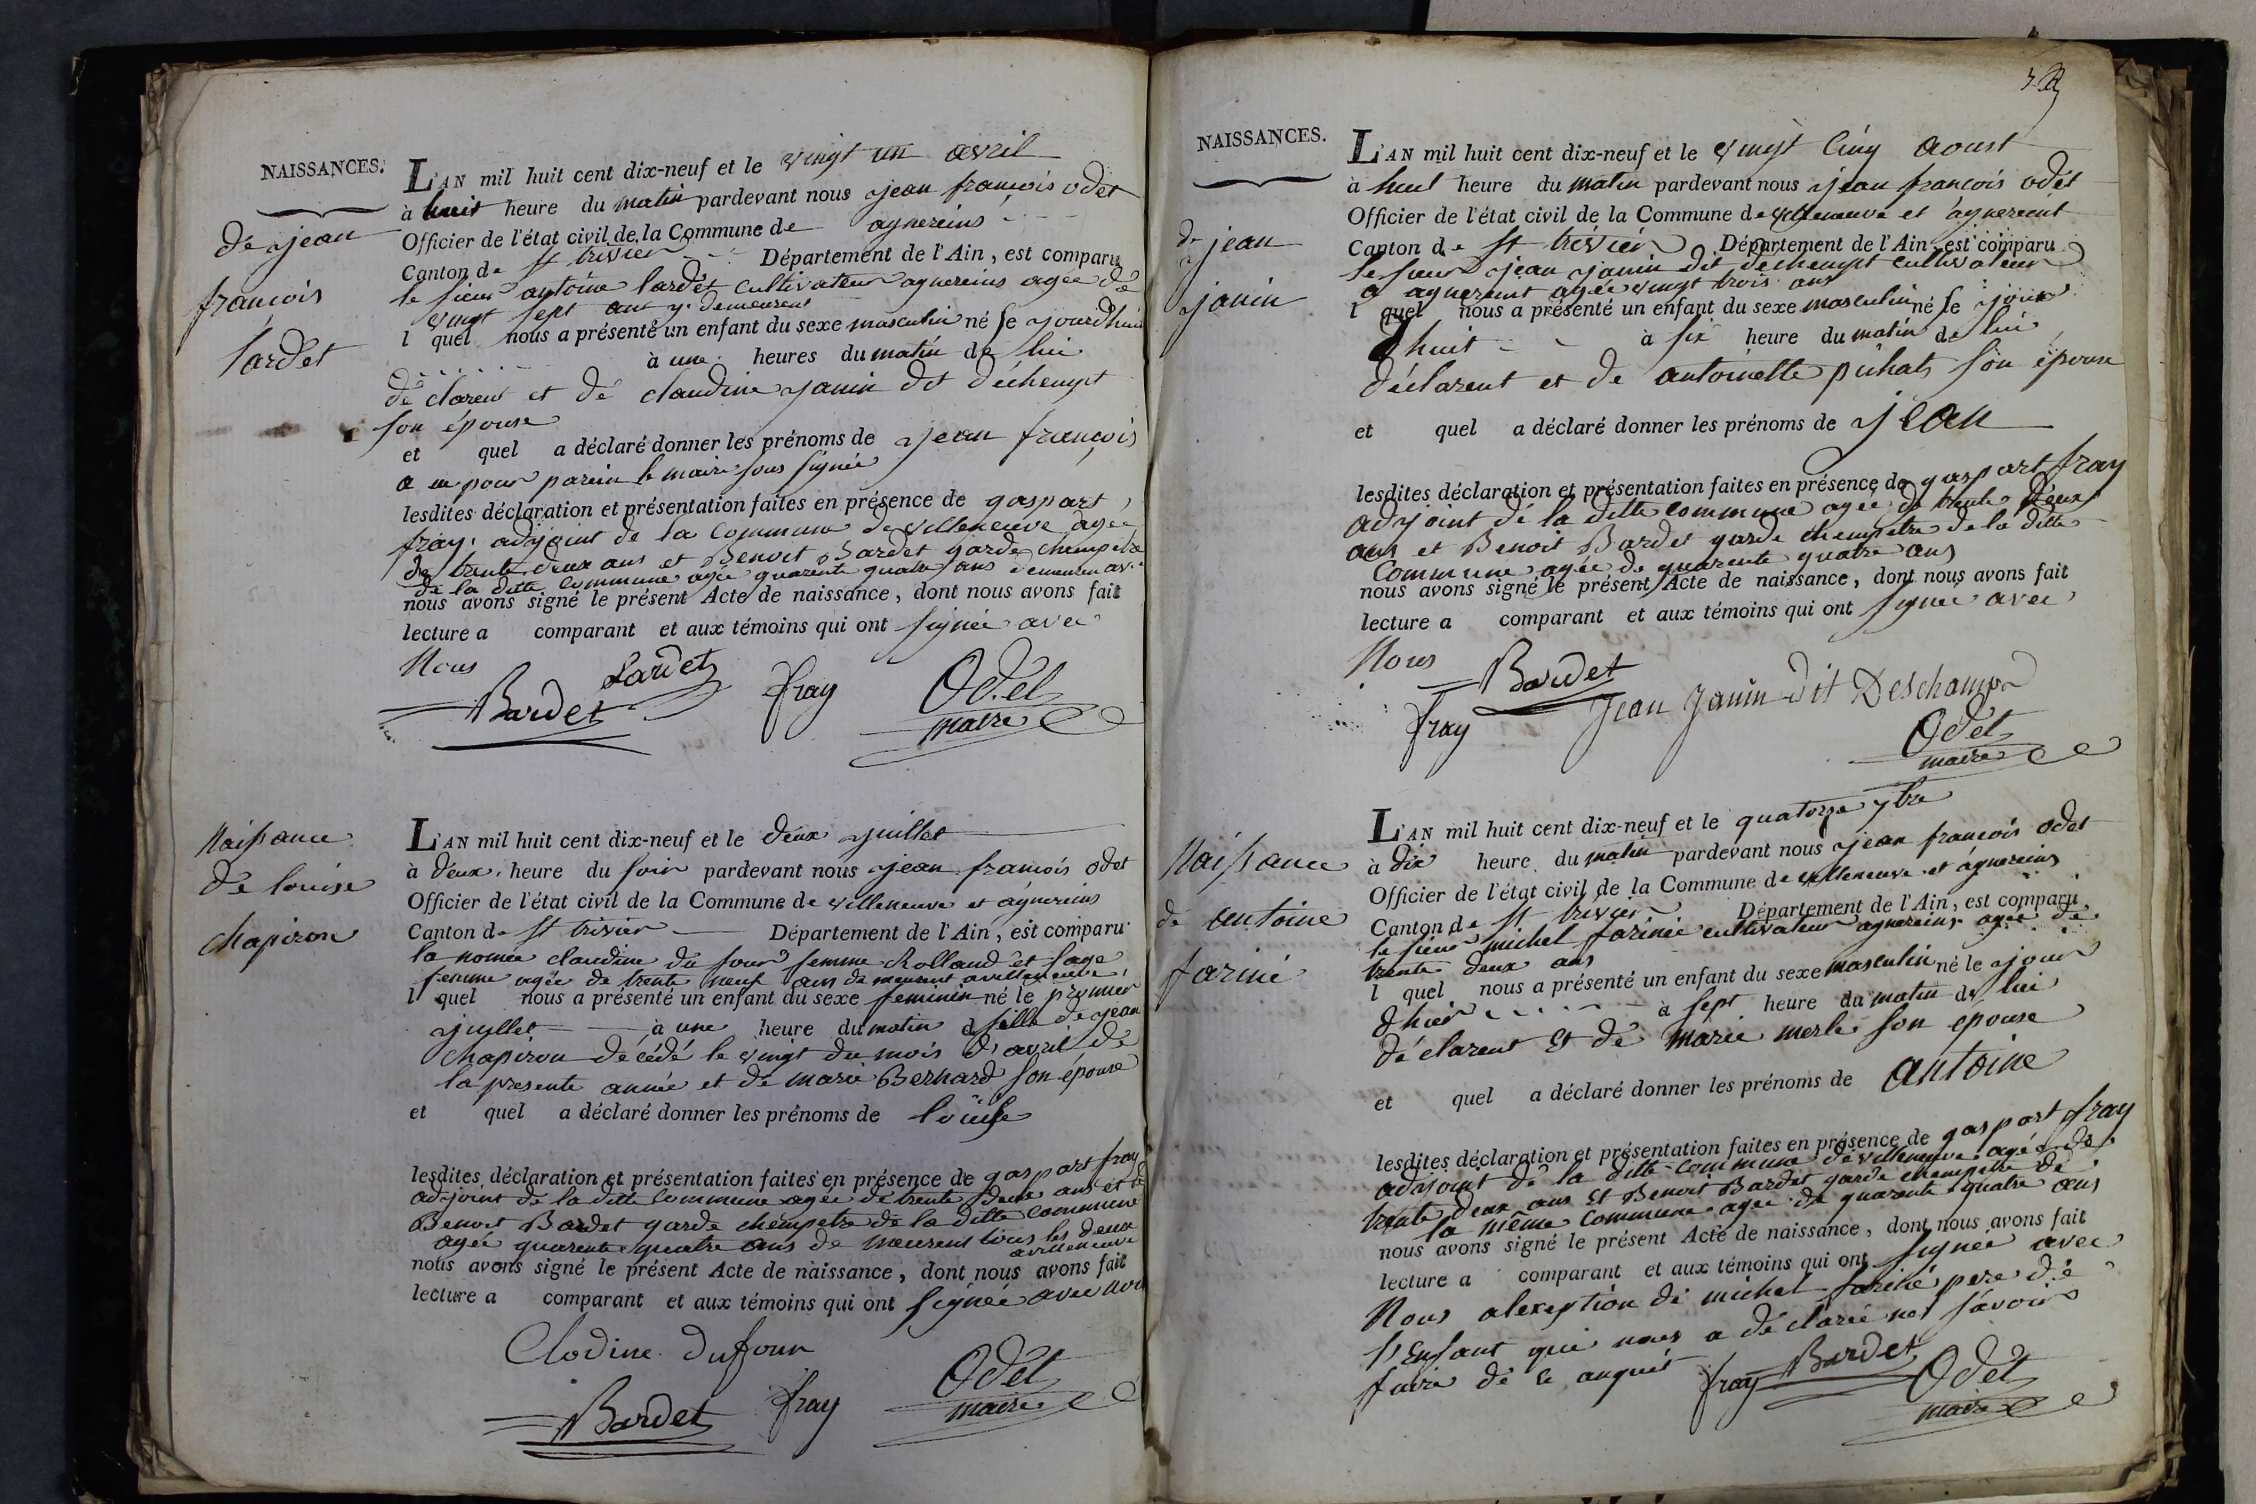 NAISSANCES.
de jean
francois
lardet
L'AN mil huit cent dix-neuf et le vingt un avril
à huit heure du matin pardevant nous jean francois odet
Officier de l'état civil de la Commune de agnereins
Canton de st trivier Département de l'Ain, est comparu
le sieur antoine lardet cultivateur agnereins agée de
vingt sept ans y demeurent
l quel nous a présenté un enfant du sexe masculin né le jourdhui
à une heures du matin de lui
déclarent et de claudine janin dit déchempt
son épouse
et quel a déclaré donner les prénoms de jean francois
a eu pour parein le maire sous signée
lesdites déclaration et présentation faites en présence de gaspart
fray adjoint de la commune de villeneuve agée
de trente deux ans et Benoit Bardet garde chempetre
de la ditte commune agée quarente quatre ans
nous avons signé le présent Acte de naissance, dont nous avons fait
lecture a comparant et aux témoins qui ont signée avec
Nous
Lardet
Bardet fray Odet
maire
Naissance
de louise
chapiron
L'AN mil huit cent dix-neuf et le deux juillet
à deux heure du soir pardevant nous jean francois odet
Officier de l'état civil de la Commune de villeneuve et agnereins
Canton de st trivier Département de l'Ain, est comparu
la nomée claudine du four femme Rolland et sage
femme agée de trente neuf ans demeurent avilleneuve
l quel nous a présenté un enfant du sexe feminin né le premier
juyllet à une heure du matin d fille de jean
chapiron décédé le vingt du mois d'avril de
la presente année et de marie Bernard son épouse
et quel a déclaré donner les prénoms de louise
lesdites déclaration et présentation faites en présence de gaspart fray
adjoint de la ditte commune agée de trente deux ans et
Benoit Bardet garde chempetre de la ditte commune
agée quarente quatre ans de meurent tous les deux
avilleneuve
nous avons signé le présent Acte de naissance, dont nous avons fait
lecture a comparant et aux témoins qui ont signée avec nous
Clodine dufour
Bardet fray Odet
maire
NAISSANCES.
de jean
janin
L'AN mil huit cent dix-neuf et le vingt cinq aoust
à huit heure du matin pardevant nous jean francois odet
Officier de l'état civil de la Commune de villeneuve et agnereint
Canton de st trévier Département de l'Ain, est comparu
le sieur jean janin dit dechempt cultivateur
a agnereint agée vingt trois ans
l quel nous a présenté un enfant du sexe masculin né le jour
dhuit à six heure du matin de lui
déclarent et de antoinette pichat son épouse
et quel a déclaré donner les prénoms de jean
lesdites déclaration et présentation faites en présence de gaspart fray
adjoint de la ditte commune agée de trente deux
ans et Benoit Bardet garde chempetre de la ditte
Commune agée de quarente quatre ans
nous avons signé le présent Acte de naissance, dont nous avons fait
lecture a comparant et aux témoins qui ont signée avec
Nous
Bardet
fray Jean Janin dit Deschamp
Odet
maire
Naissance
de antoine
fariné
L'AN mil huit cent dix-neuf et le quatorze 7bre
à dix heure du matin pardevant nous jean francois odet
Officier de l'état civil de la Commune de villeneuve et agnereins
Canton de st trivier Département de l'Ain, est comparu
le sieur michel farinée cultivateur agnereins agée de
trente deux ans
l quel nous a présenté un enfant du sexe masculin né le jour
dhier à sept heure du matin de lui
déclarent Et de marie merle son epouse
et quel a déclaré donner les prénoms de antoine
lesdites déclaration et présentation faites en présence de gaspart fray
adajoint de la ditte commune de villeneuve agée de
trente deux ans Et Benoit Bardet garde chempetre de
la même commune agée de quarante quatre ans
nous avons signé le présent Acte de naissance, dont nous avons fait
lecture a comparant et aux témoins qui ont signée avec
Nous alexeption de michel fariné pere de
l'Enfant qui nous a déclarée ne savoir
faire de ce anquit
fray Bardet Odet
maire